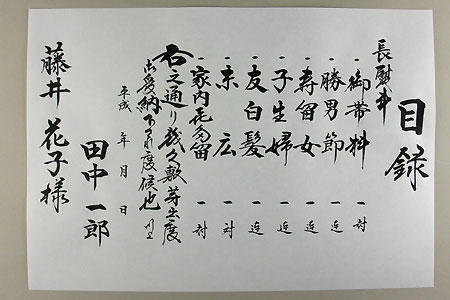 目録
長熨斗
一 御帯料 一対
一 勝男節 一連
一 寿留女 一連
一 子生婦 一連
一 友白髪 一連
一 末広 一対
一 家内喜多留 一対
右之通り幾久敷芽出度
御受納下され度候也
平成 年 月 日
田中一郎
藤井 花子様